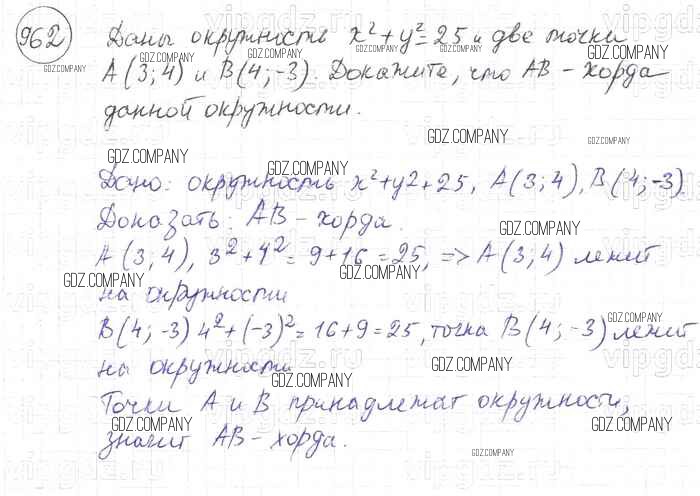 962 Даны окружность x²+y²=25 и две точки
A(3;4) и B(4;-3). Докажите, что AB – хорда
данной окружности.
Дано: окружность x²+y2+25, A(3;4), B(4;-3)
Доказать: AB – хорда.
A(3;4), 3²+4²=9+16=25, => A(3;4) лежит
на окружности
B(4;-3) 4²+(-3)²=16+9=25, точка B(4;-3) лежит
на окружности
Точки A и B принадлежат окружности,
значит AB – хорда.